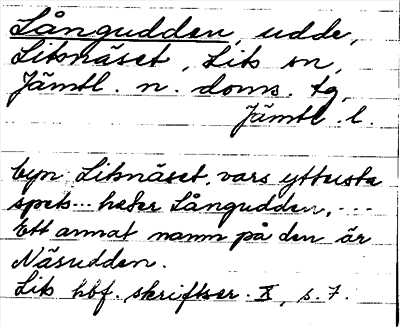 Långudden, udde,
Liknäset, Lits sn,
Jämtl. n. doms. tg,
Jämtl. l.
byn Litsnäset, vars yttersta
spets... heter Långudden, ...
Ett annat namn på den är
Näsudden.
Lits hbf. skriftser. X, s. 7.